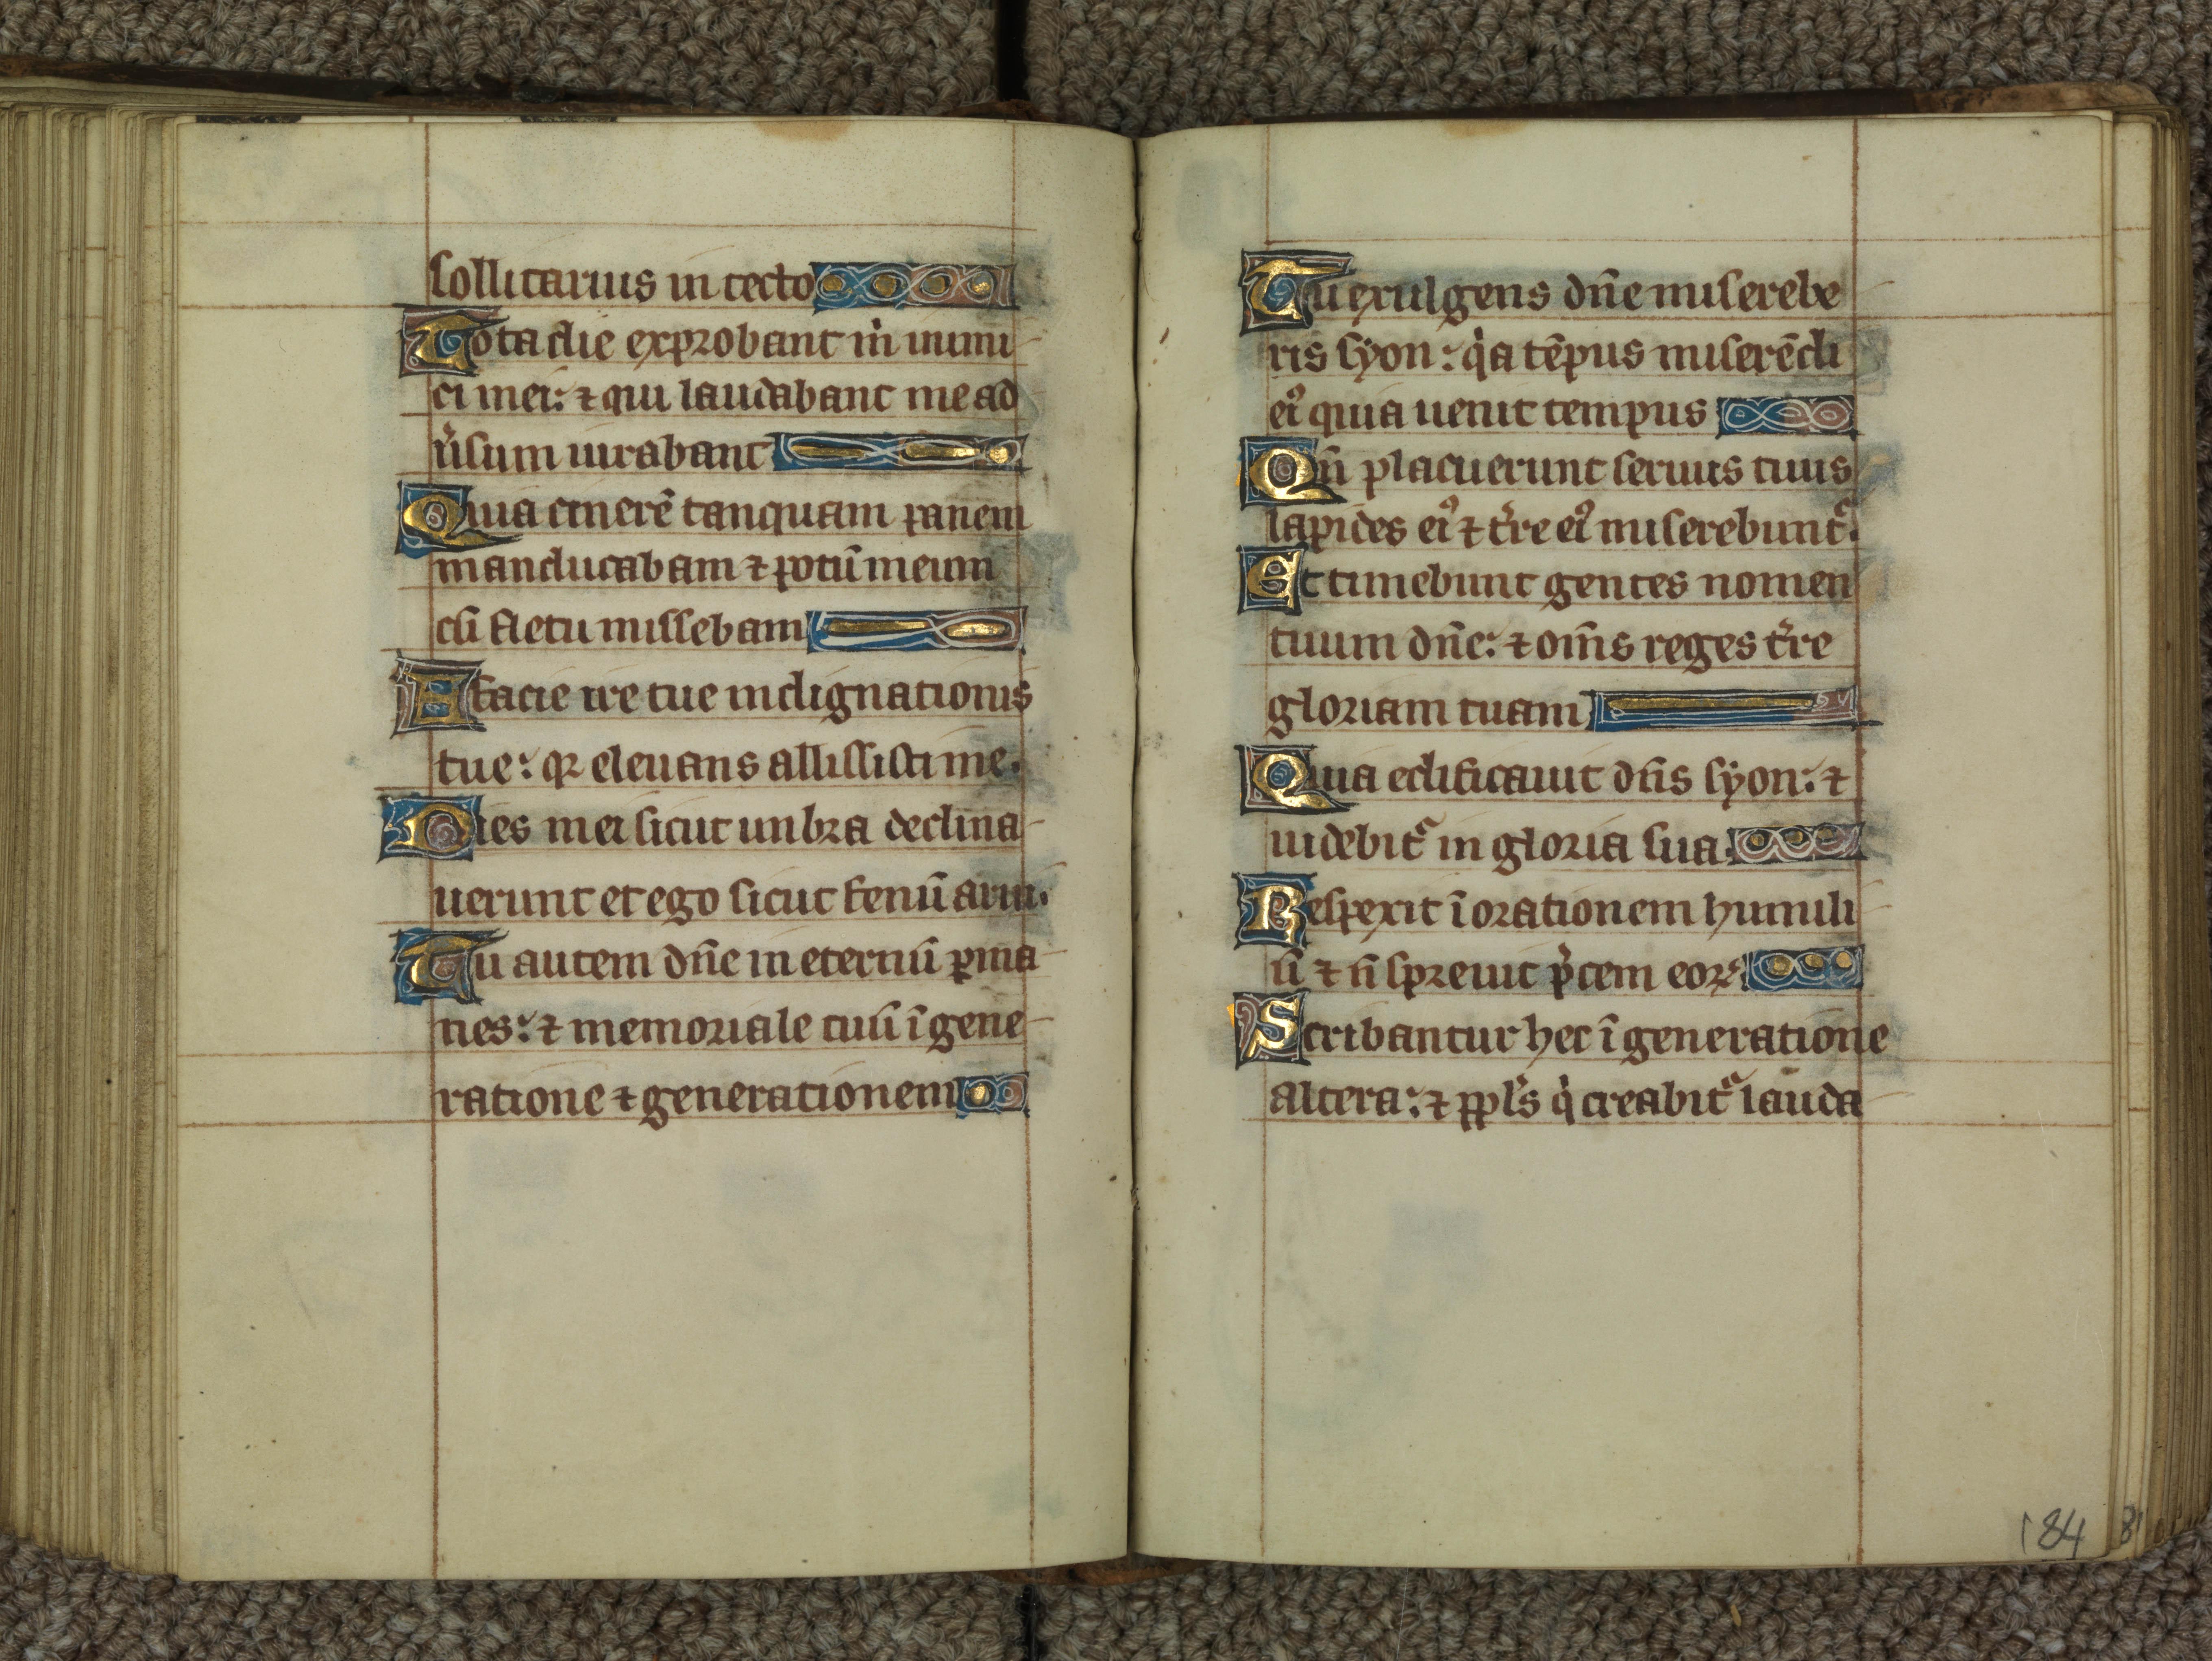 sollitarius in tecto
Tota die exprobant m̉ inimi
ci mei: ⁊ qui laudabant me ad
ủsum iurabant
Quia cinerē tanquam panem
manducabam ⁊ potū meum
cū fletu missebam
A facie ire tue indignationis
tue: qꝛ eleuans allissisti me.
Dies mei sicut unbra declina
uerunt et ego sicut fenū arui.
Tu autem dn̄e in eternū ꝑma
nes: ⁊ memoriale tuū ī gene
ratione ⁊ generationem
Tu exulgens dn̄e miserebe
ris syon: qͥa tēpus miserēdi
eiꝰ quia uenit tempus
Qn̄ placuerunt seruis tuis
lapides eiꝰ ⁊ t̉re eiꝰ miserebuntᷣ.
Et timebunt gentes nomen
tuum dn̄e: ⁊ om̄s reges t̉re
gloriam tuam
Quia edificauit dn̄s syon: ⁊
uidebitᷣ in gloria sua
Respexit ī orationem humili
ū ⁊ n̄ spreuit p̉cem eoꝝ
Scribantur hec ī generatione
altera: ⁊ ppl̉s qͥ creabitᷣ lauda
184